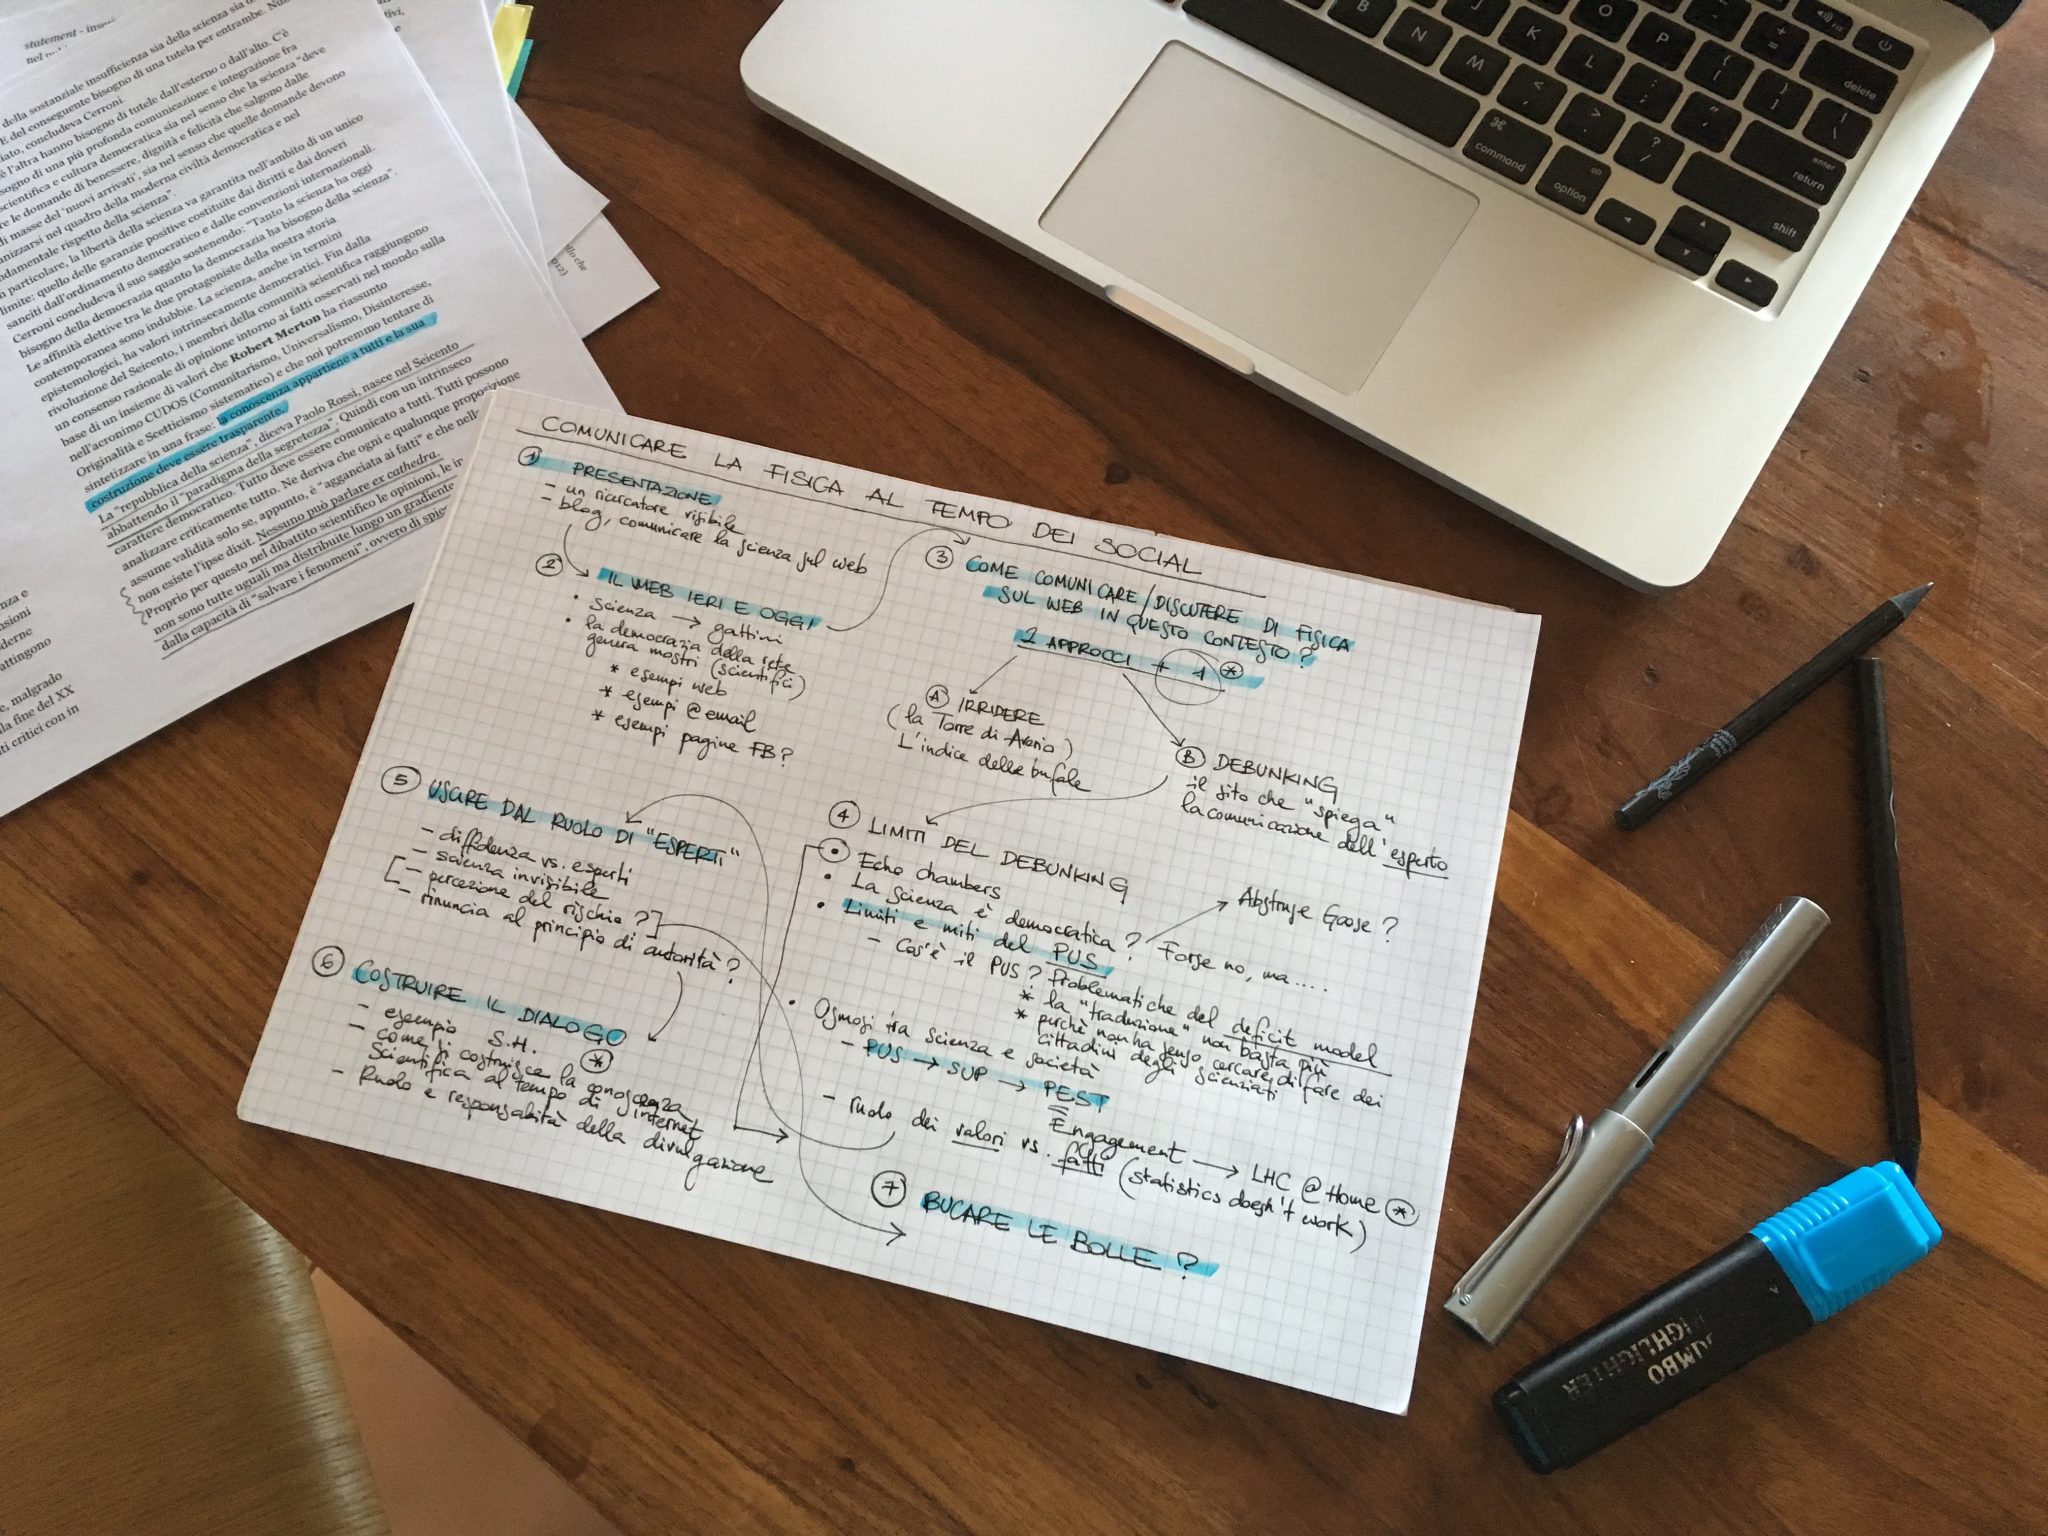 statement - 
della sostanziale insufficienza sia della scienza sia
E del conseguente bisogno di una tutela per entrambe.
concludeva Cerroni.
è l'altra hanno bisogno di tutele dall'esterno o dall'alto. C'è
di una più profonda comunicazione e integrazione fra
scientifica e cultura democratica sia nel senso che la scienza "deve
le domande di benessere, dignità e felicità che salgono dalle
di masse dei 'nuovi arrivati', sia nel senso che quelle domande devono
nel quadro della moderna civiltà democratica e nel
rispetto della scienza".
particolare, la libertà della scienza va garantita nell'ambito di un unico
limite: quello delle garanzie positive costituite dai diritti e dai doveri
sanciti dall'ordinamento democratico e dalle convenzioni internazionali.
Cerroni concludeva il suo saggio sostenendo: "Tanto la scienza ha oggi
bisogno della democrazia quanto la democrazia ha bisogno della scienza".
Le affinità elettive tra le due protagoniste della nostra storia
contemporanea sono indubbie. La scienza, anche in termini
epistemologici, ha valori intrinsecamente democratici. Fin dalla
rivoluzione del Seicento, i membri della comunità scientifica raggiungono
un consenso razionale di opinione intorno ai fatti osservati nel mondo sulla
base di un insieme di valori che Robert Merton ha riassunto
nell'acronimo CUDOS (Comunitarismo, Universalismo, Disinteresse,
Originalità e Scetticismo sistematico) e che noi potremmo tentare di
sintetizzare in una frase: la conoscenza appartiene a tutti e la sua
costruzione deve essere trasparente.
La "repubblica della scienza", diceva Paolo Rossi, nasce nel Seicento
abbattendo il "paradigma della segretezza". Quindi con un intrinseco
carattere democratico. Tutto deve essere comunicato a tutti. Tutti possono
analizzare criticamente tutto. Ne deriva che ogni e qualunque proposizione
assume validità solo se, appunto, è "agganciata ai fatti" e che nella
non esiste l'ipse dixit. Nessuno può parlare ex cathedra.
Proprio per questo nel dibattito scientifico le opinioni, le
non sono tutte uguali ma distribuite lungo un gradiente
dalla capacità di "salvare i fenomeni", ovvero di
malgrado
fine del XX
critici con in
COMUNICARE LA FISICA AL TEMPO DEI SOCIAL
1 PRESENTAZIONE
- un ricercatore visibile
- blog, comunicare la scienza sul web
2 IL WEB IERI E OGGI
• scienza → gattini
• la democrazia della rete
genera mostri (scientifici)
* esempi web
* esempi @email
* esempi pagine FB?
3 COME COMUNICARE/DISCUTERE DI FISICA
SUL WEB IN QUESTO CONTESTO?
2 APPROCCI + 1 *
A IRRIDERE
(la Torre di Avorio)
L'indice delle bufale
B DEBUNKING
il sito che "spiega"
la comunicazione dell'esperto
4 LIMITI DEL DEBUNKING
• Echo chambers
• La scienza è democratica? Forse no, ma....
Abstruse Goose?
• Limiti e miti del PUS
- Cos'è il PUS? Problematiche del deficit model
* la "traduzione" non basta più
* perché non ha senso cercare di fare dei
cittadini degli scienziati
• Osmosi tra scienza e società
- PUS → SUP → PEST
=
Engagement → LHC @ Home *
- ruolo dei valori vs. fatti (statistics doesn't work)
5 USCIRE DAL RUOLO DI "ESPERTI"
- diffidenza vs. esperti
- scienza invisibile
- percezione del rischio?
- rinuncia al principio di autorità?
6 COSTRUIRE IL DIALOGO
- esempio S.H. *
- come si costruisce la conoscenza
scientifica al tempo di internet
- Ruolo e responsabità della divulgazione
7 BUCARE LE BOLLE?
B
N
M
J
K
L
O
P
<
,
>
.
?
/
:
;
"
'
{
[
}
]
|
\
+
=
delete
enter
return
shift
⌘
command
alt
option
JUMBO
HIGHLIGHTER